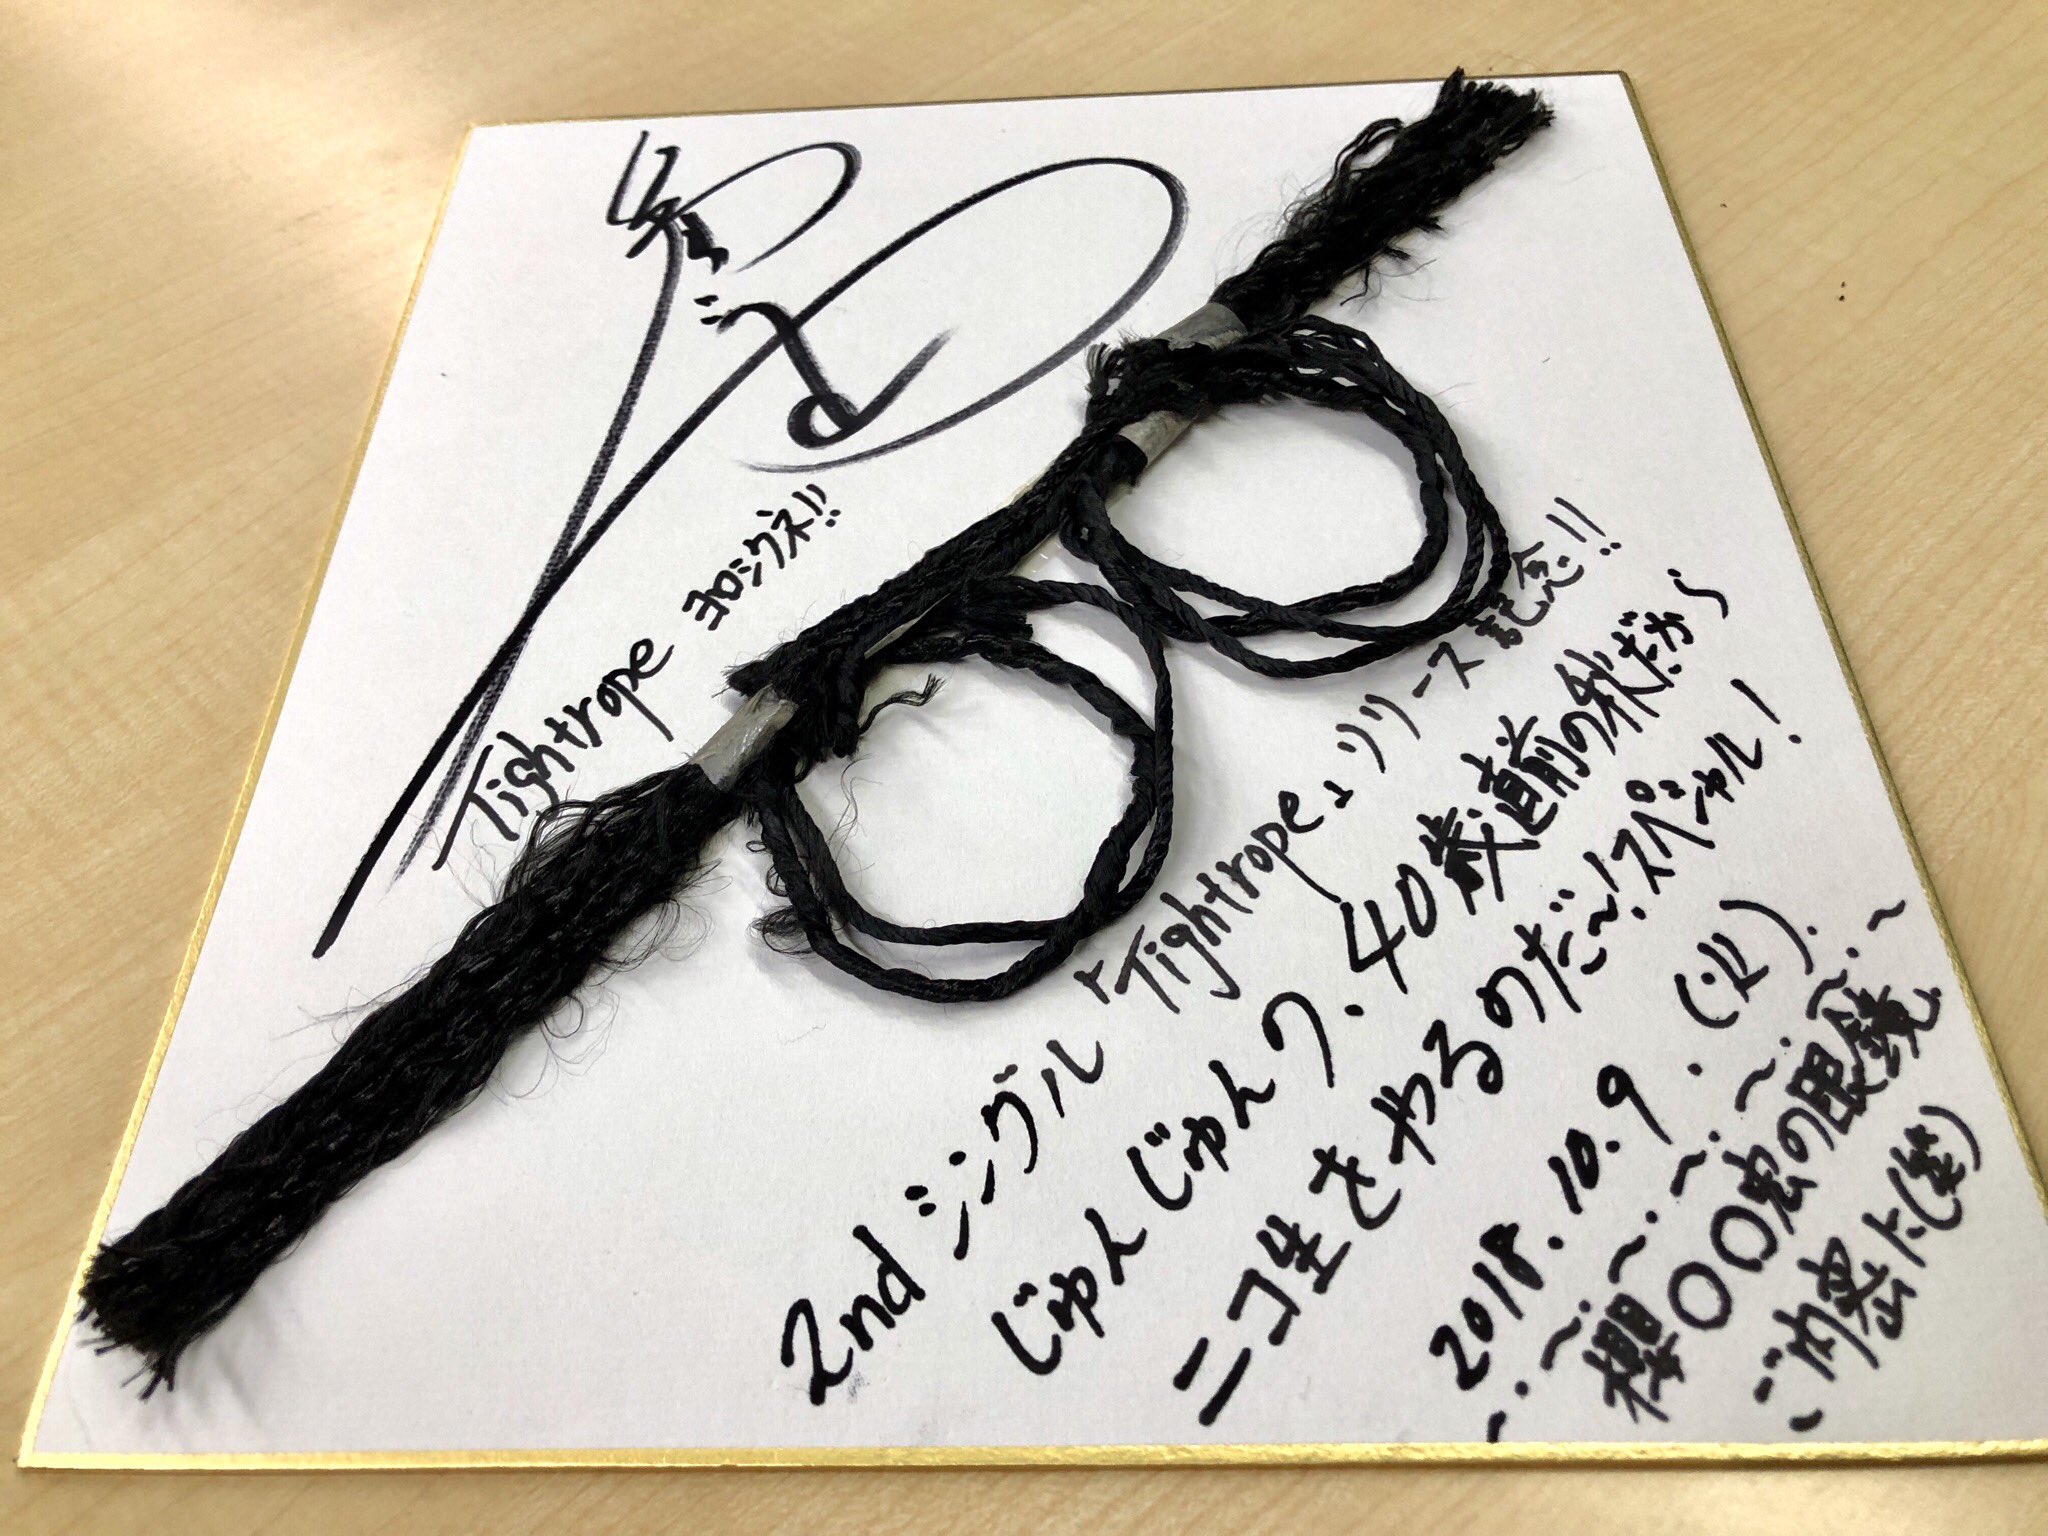 Tightrope ヨロシクネ!!
2nd シングル「Tightrope」リリース記念!!
じゅんじゅんワ.40歳直前の秋だから
ニコ生をやるのだ〜!スペシャル!
2018.10.9.(火).
〜.〜.〜.〜.〜.〜.〜
櫻〇〇虫の眼鏡
ご内密に(笑)